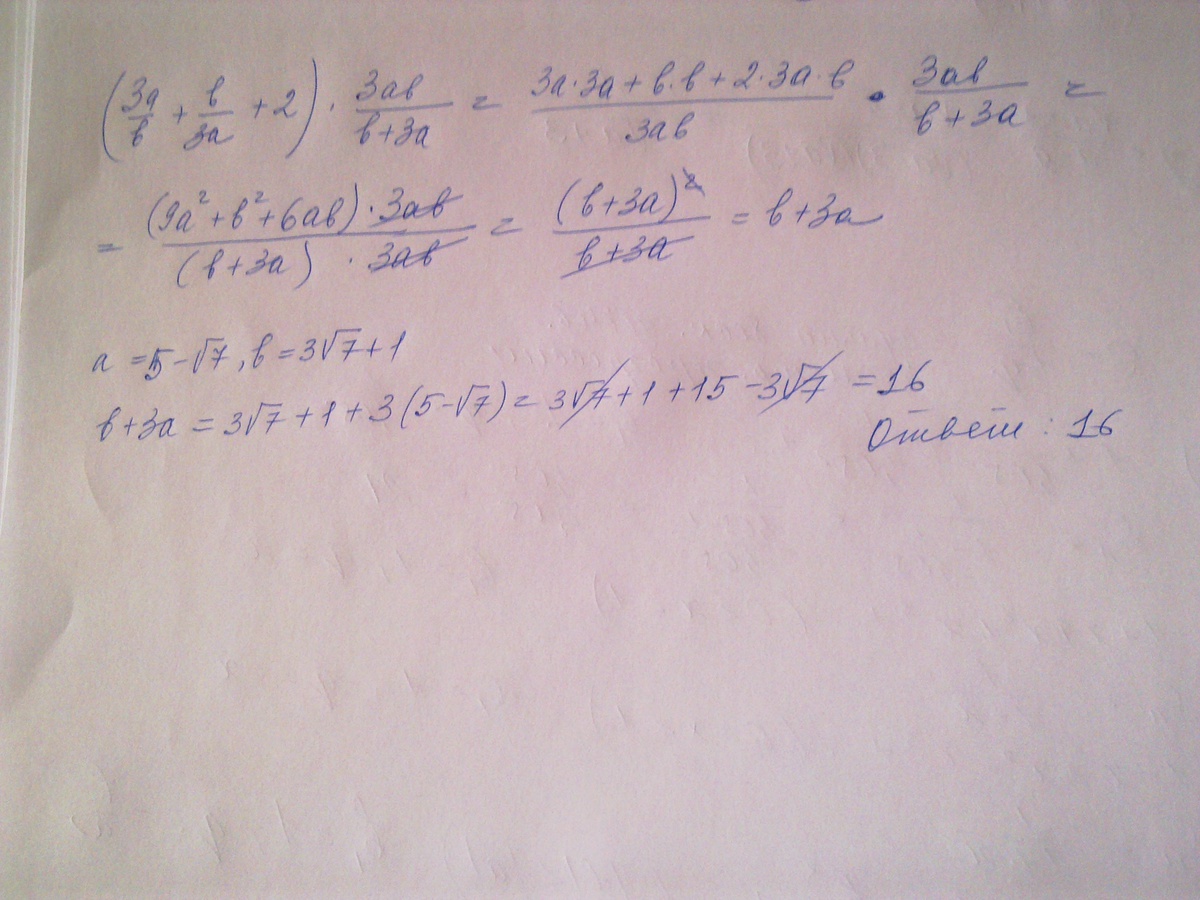 (3a/b + b/3a + 2) · 3ab/(b+3a) = (3a·3a + b·b + 2·3a·b)/3ab · 3ab/(b+3a) =
= (9a² + b² + 6ab)·3ab/((b+3a)·3ab) = (b+3a)²/(b+3a) = b+3a
a = 5-√7, b = 3√7+1
b+3a = 3√7+1+3(5-√7) = 3√7+1+15-3√7 = 16
Ответ: 16